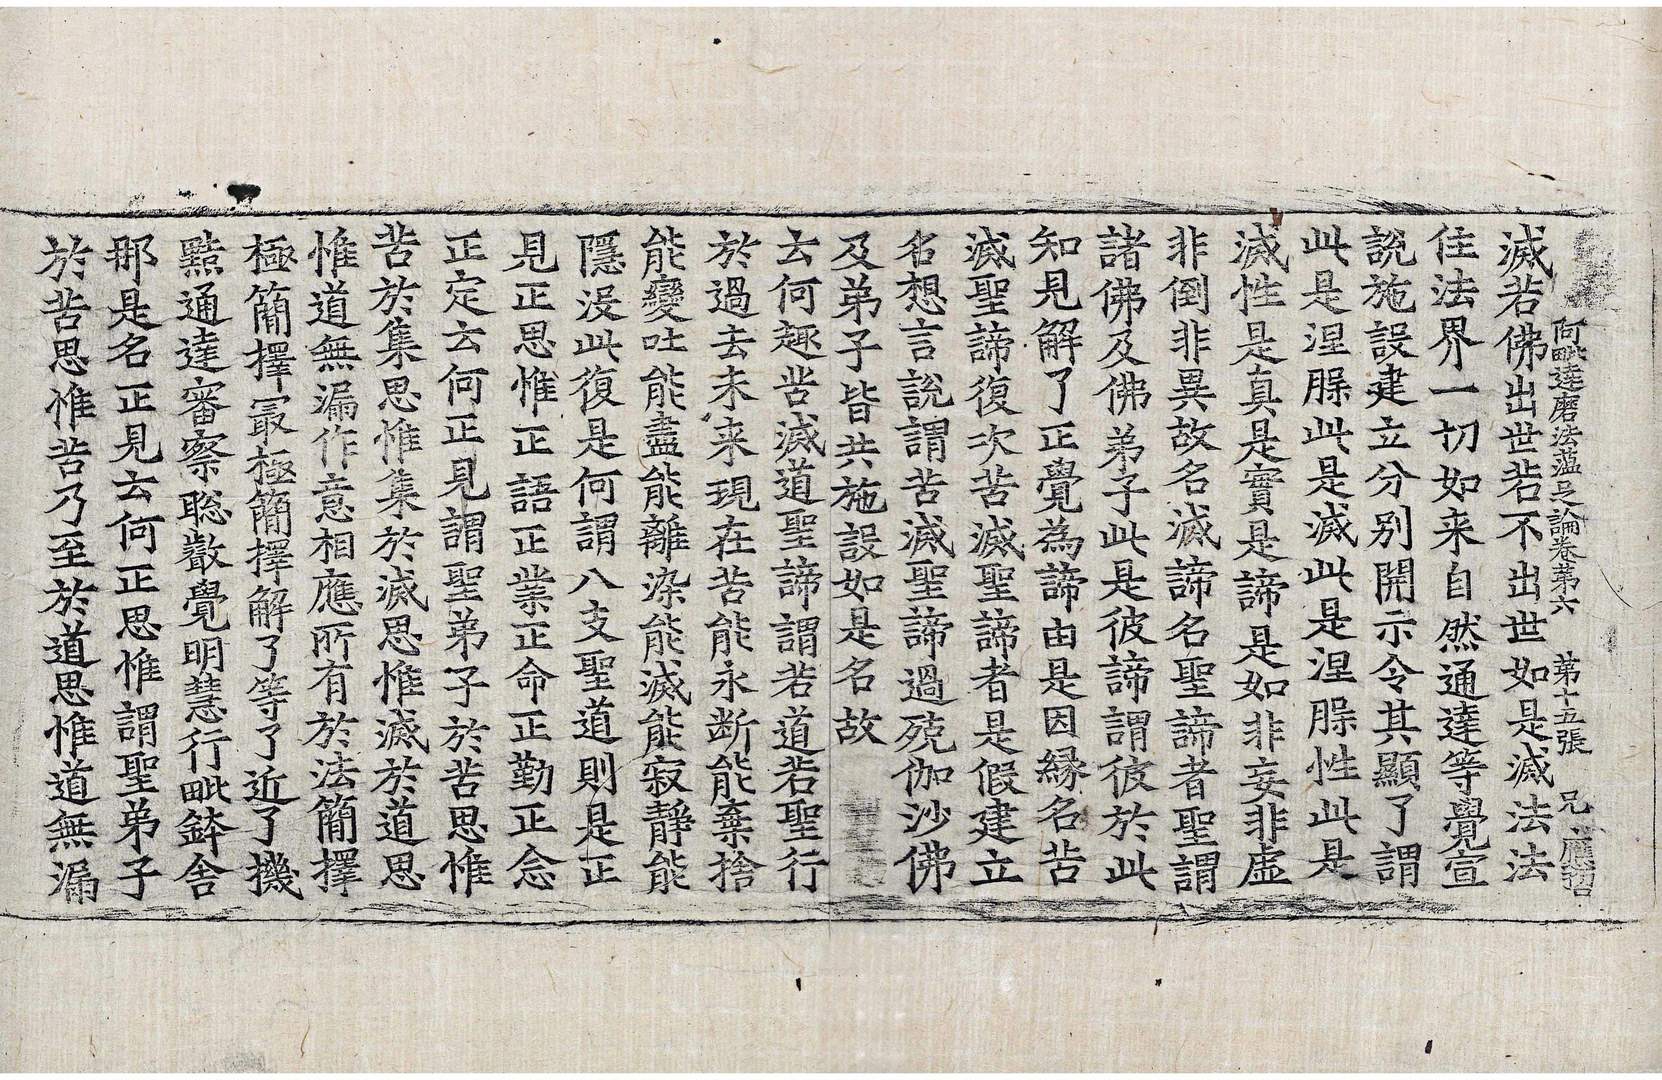 阿毗達磨法蘊足論卷第六 第十五張 兄 應哲
滅若佛出世若不出世如是滅法法
住法界一切如来自然通達等覺宣
說施設建立分別開示令其顯了謂
此是涅脲此是滅此是涅脲性此是
滅性是真是實是諦是如非妄非虛
非倒非異故名滅諦名聖諦者聖謂
諸佛及佛弟子此是彼諦謂彼於此
知見解了正覺為諦由是因緣名苦
滅聖諦復次苦滅聖諦者是假建立
名想言說謂苦滅聖諦過殑伽沙佛
及弟子皆共施設如是名故
云何趣苦滅道聖諦謂若道若聖行
於過去未来現在苦能永斷能棄捨
能變吐能盡能離染能滅能寂靜能
隱没此復是何謂八支聖道則是正
見正思惟正語正業正命正勤正念
正定云何正見謂聖弟子於苦思惟
苦於集思惟集於滅思惟滅於道思
惟道無漏作意相應所有於法簡擇
極簡擇冣極簡擇解了等了近了機
黠通達審察聡叡覺明慧行毗鉢舍
那是名正見云何正思惟謂聖弟子
於苦思惟苦乃至於道思惟道無漏